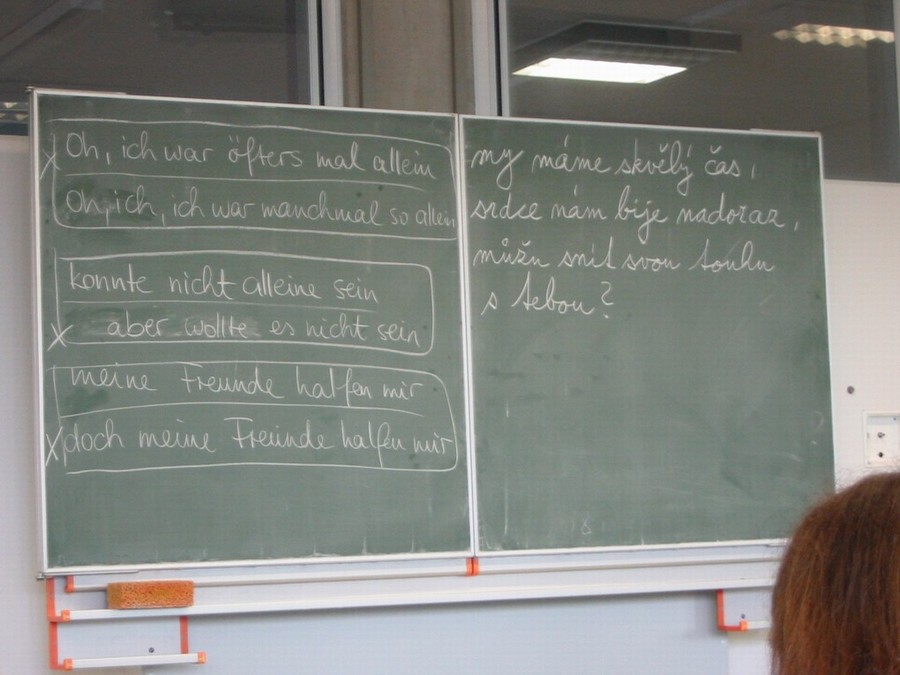 Oh, ich war öfters mal allein
Oh, ich, ich war manchmal so allein
konnte nicht alleine sein
aber wollte es nicht sein
meine Freunde halfen mir
doch meine Freunde halfen mir
my máme skvělý čas,
srdce nám bije nadoraz,
můžu snít svou touhu
s tebou?